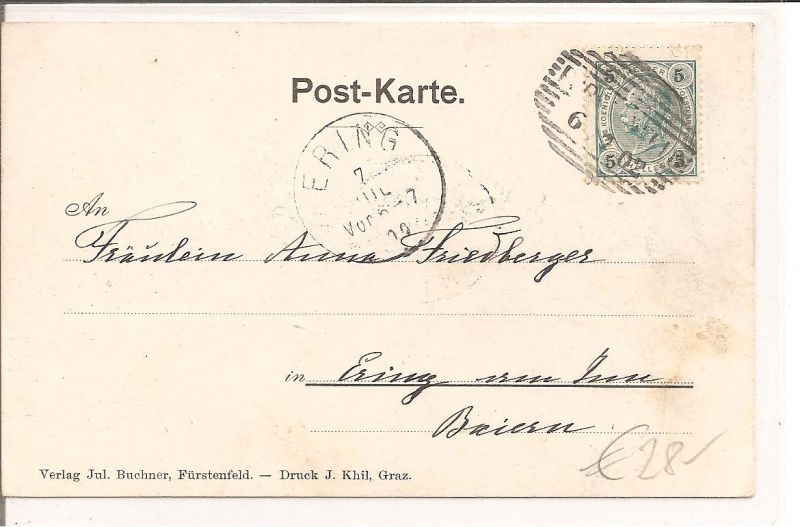 Post-Karte.
5 5
5 5
6
ERING
7
VII
An
Fräulein Anna Friedberger
in Ering am Inn
Baiern.
€28-
Verlag Jul. Buchner, Fürstenfeld. — Druck J. Khil, Graz.